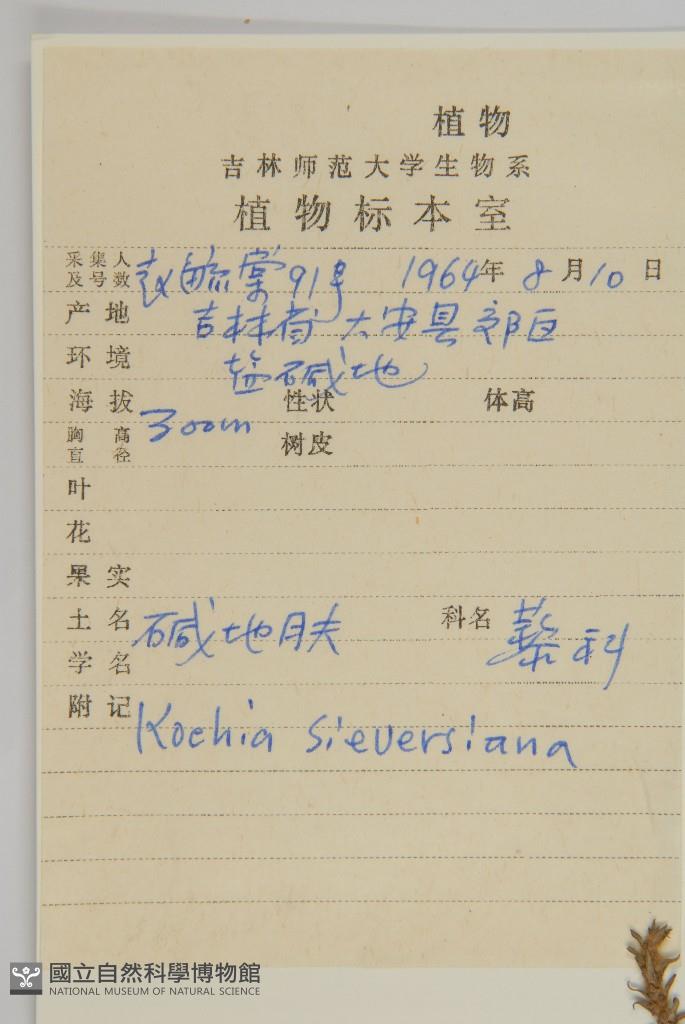 植物
吉林师范大学生物系
植物标本室
采集人及号数 袁毓棠91号 1964年8月10日
产地 吉林省大安县郊区
环境 盐碱地
海拔 300m 性状 体高
胸高直径 树皮
叶
花
果实
土名 碱地肤 科名 藜科
学名
附记 Kochia sieversiana
國立自然科學博物館
NATIONAL MUSEUM OF NATURAL SCIENCE